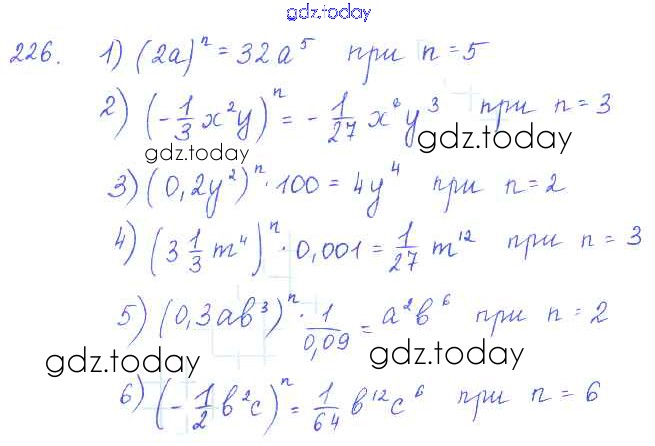 gdz.today
226. 1) (2a)^n = 32a^5 при n = 5
2) (-1/3 x^2y)^n = -1/27 x^6y^3 при n = 3
gdz.today
gdz.today
3) (0,2y^2)^n · 100 = 4y^4 при n = 2
4) (3 1/3 m^4)^n · 0,001 = 1/27 m^12 при n = 3
5) (0,3ab^3)^n · 1/0,09 = a^2b^6 при n = 2
gdz.today
gdz.today
6) (-1/2 b^2c)^n = 1/64 b^12c^6 при n = 6